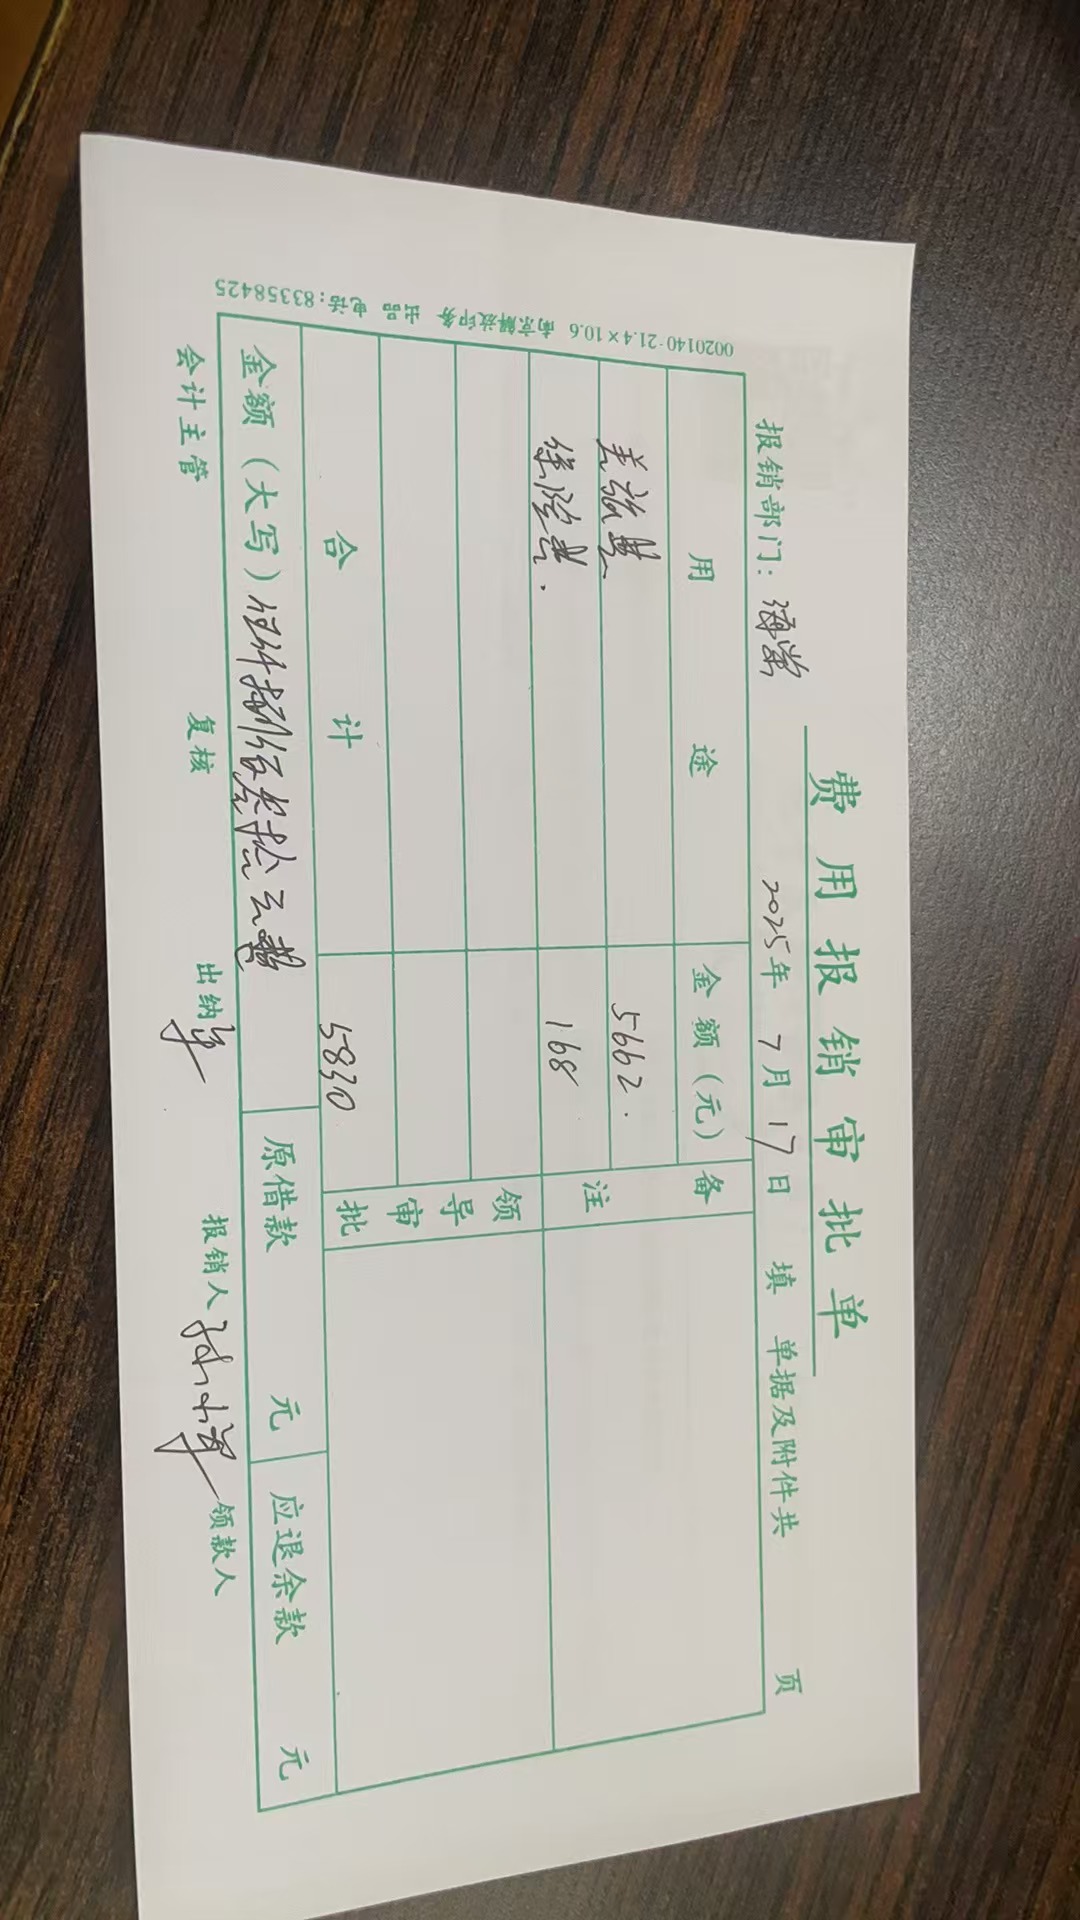 费用报销审批单
报销部门：海棠 2025年7月17日填 单据及附件共 页
用途 金额（元） 备注
5662.
168
领导审批
合计 5830
金额（大写）伍仟捌佰叁拾元整 原借款 元 应退余款 元
会计主管 复核 出纳 报销人 领款人
0020140-21.4×10.6 南京解放印务 出品 电话:83358425